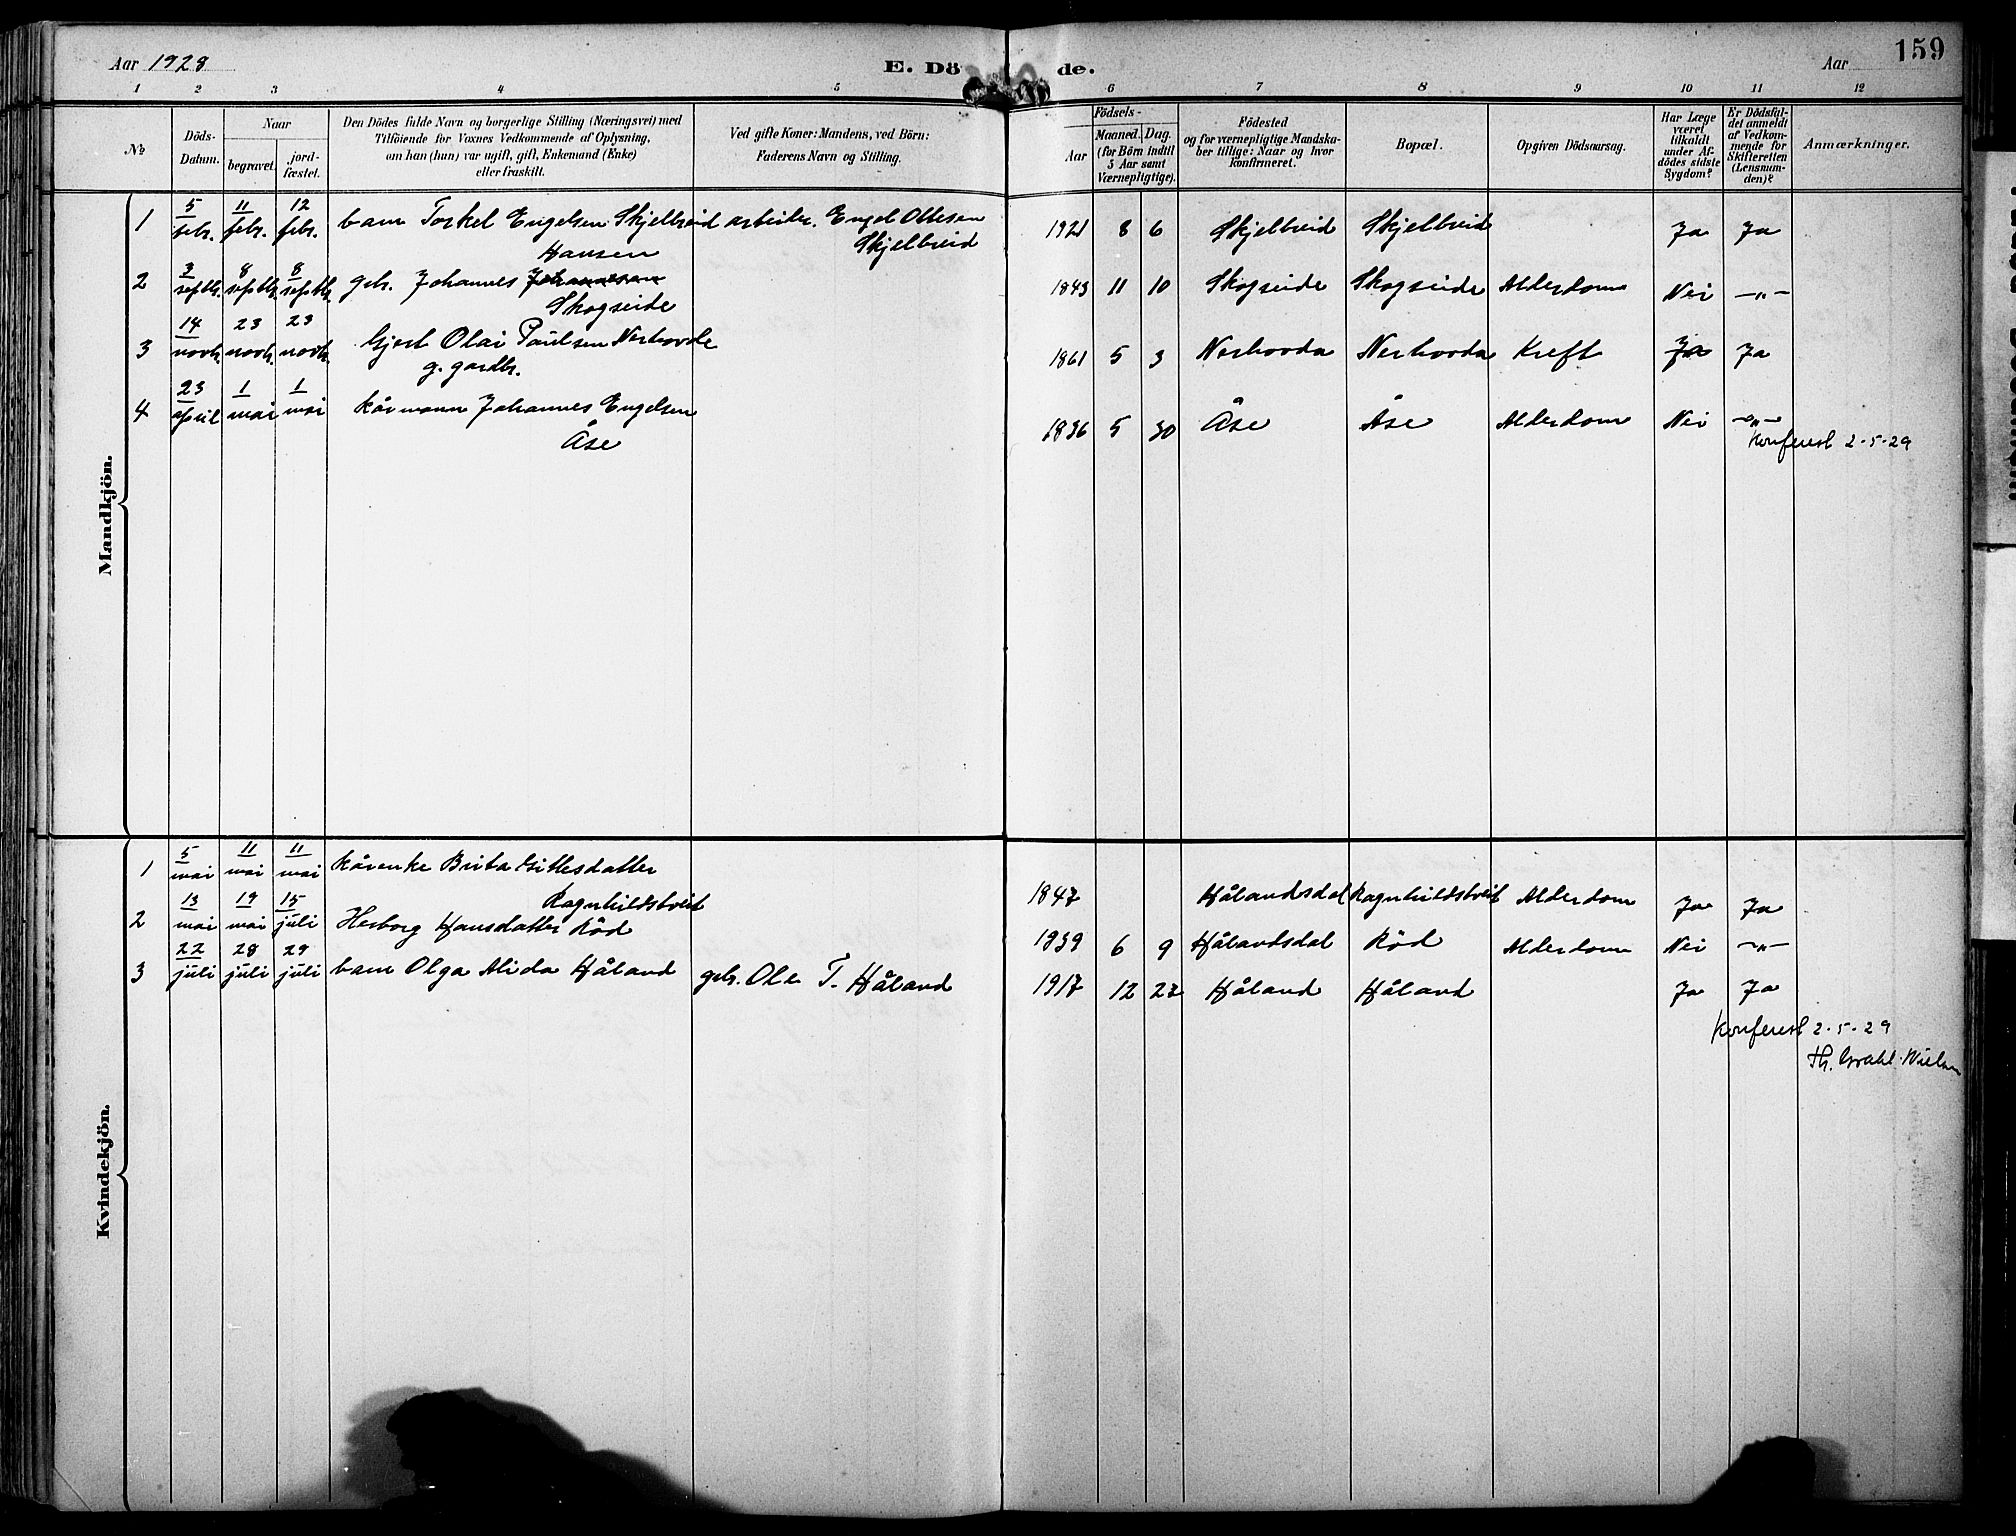 Aar 1928
E. Dö de.
Aar
159
1 2 3 4 5 6 7 8 9 10 11 12
№
Döds-
Datum.
Naar
begravet.
jord-
fæstet.
Den Dödes fulde Navn og borgerlige Stilling (Næringsvei) med
Tilföiende for Voxnes Vedkommende af Oplysning,
om han (hun) var ugift, gift, Enkemand (Enke)
eller fraskilt.
Ved gifte Koner: Mandens, ved Börn:
Faderens Navn og Stilling.
Födsels-
Aar
Maaned. Dag.
(for Börn indtil
5 Aar samt
Værnepligtige).
Födested
og for værnepligtige Mandska-
ber tillige: Naar og hvor
konfirmeret.
Bopæl.
Opgiven Dödsaarsag.
Har Læge
været
tilkaldt
under Af-
dödes sidste
Sygdom?
Er Dödsfal-
det anmeldt
af Vedkom-
mende for
Skifteretten
(Lensman-
den)?
Anmærkninger.
Mandkjön.
1 5 febr. 11 febr. 12 febr. barn Torkel Engelsen Skjelbreid arbeider. Engel Ottesen
Skjelbreid
1921 8 6 Skjelbreid Skjelbreid Ja Ja
Hansen
2 3 septbr. 8 septbr. 8 septbr. gbr. Johannes Johannesen
Skogseide
1843 11 10 Skogseide Skogseide Alderdom Nei -"-
3 14 novbr. 23 novbr. 23 novbr. Gjert Olai Paulsen Nerhovde
g. gardbr.
1861 5 3 Nerhovda Nerhovda Kreft Ja Ja
4 23 april 1 mai 1 mai kårmann Johannes Engelsen
Åse
1836 5 30 Åse Åse Alderdom Nei -"-
Konferert 2-5-29
Kvindekjön.
1 5 mai 11 mai 11 mai kårenke Brita Gittlesdatter
Ragnhildstveit
1847 Hålandsdal Ragnhildstveit Alderdom Ja Ja
2 13 mai 19 mai 15 juli Herborg Hansdatter Röd
1839 6 9 Hålandsdal Röd Alderdom Nei -"-
3 22 juli 28 juli 29 juli barn Olga Alida Håland gbr. Ole T. Håland
1917 12 27 Håland Håland Ja Ja
Konferert 2-5-29
Th. Grahl-Nielsen